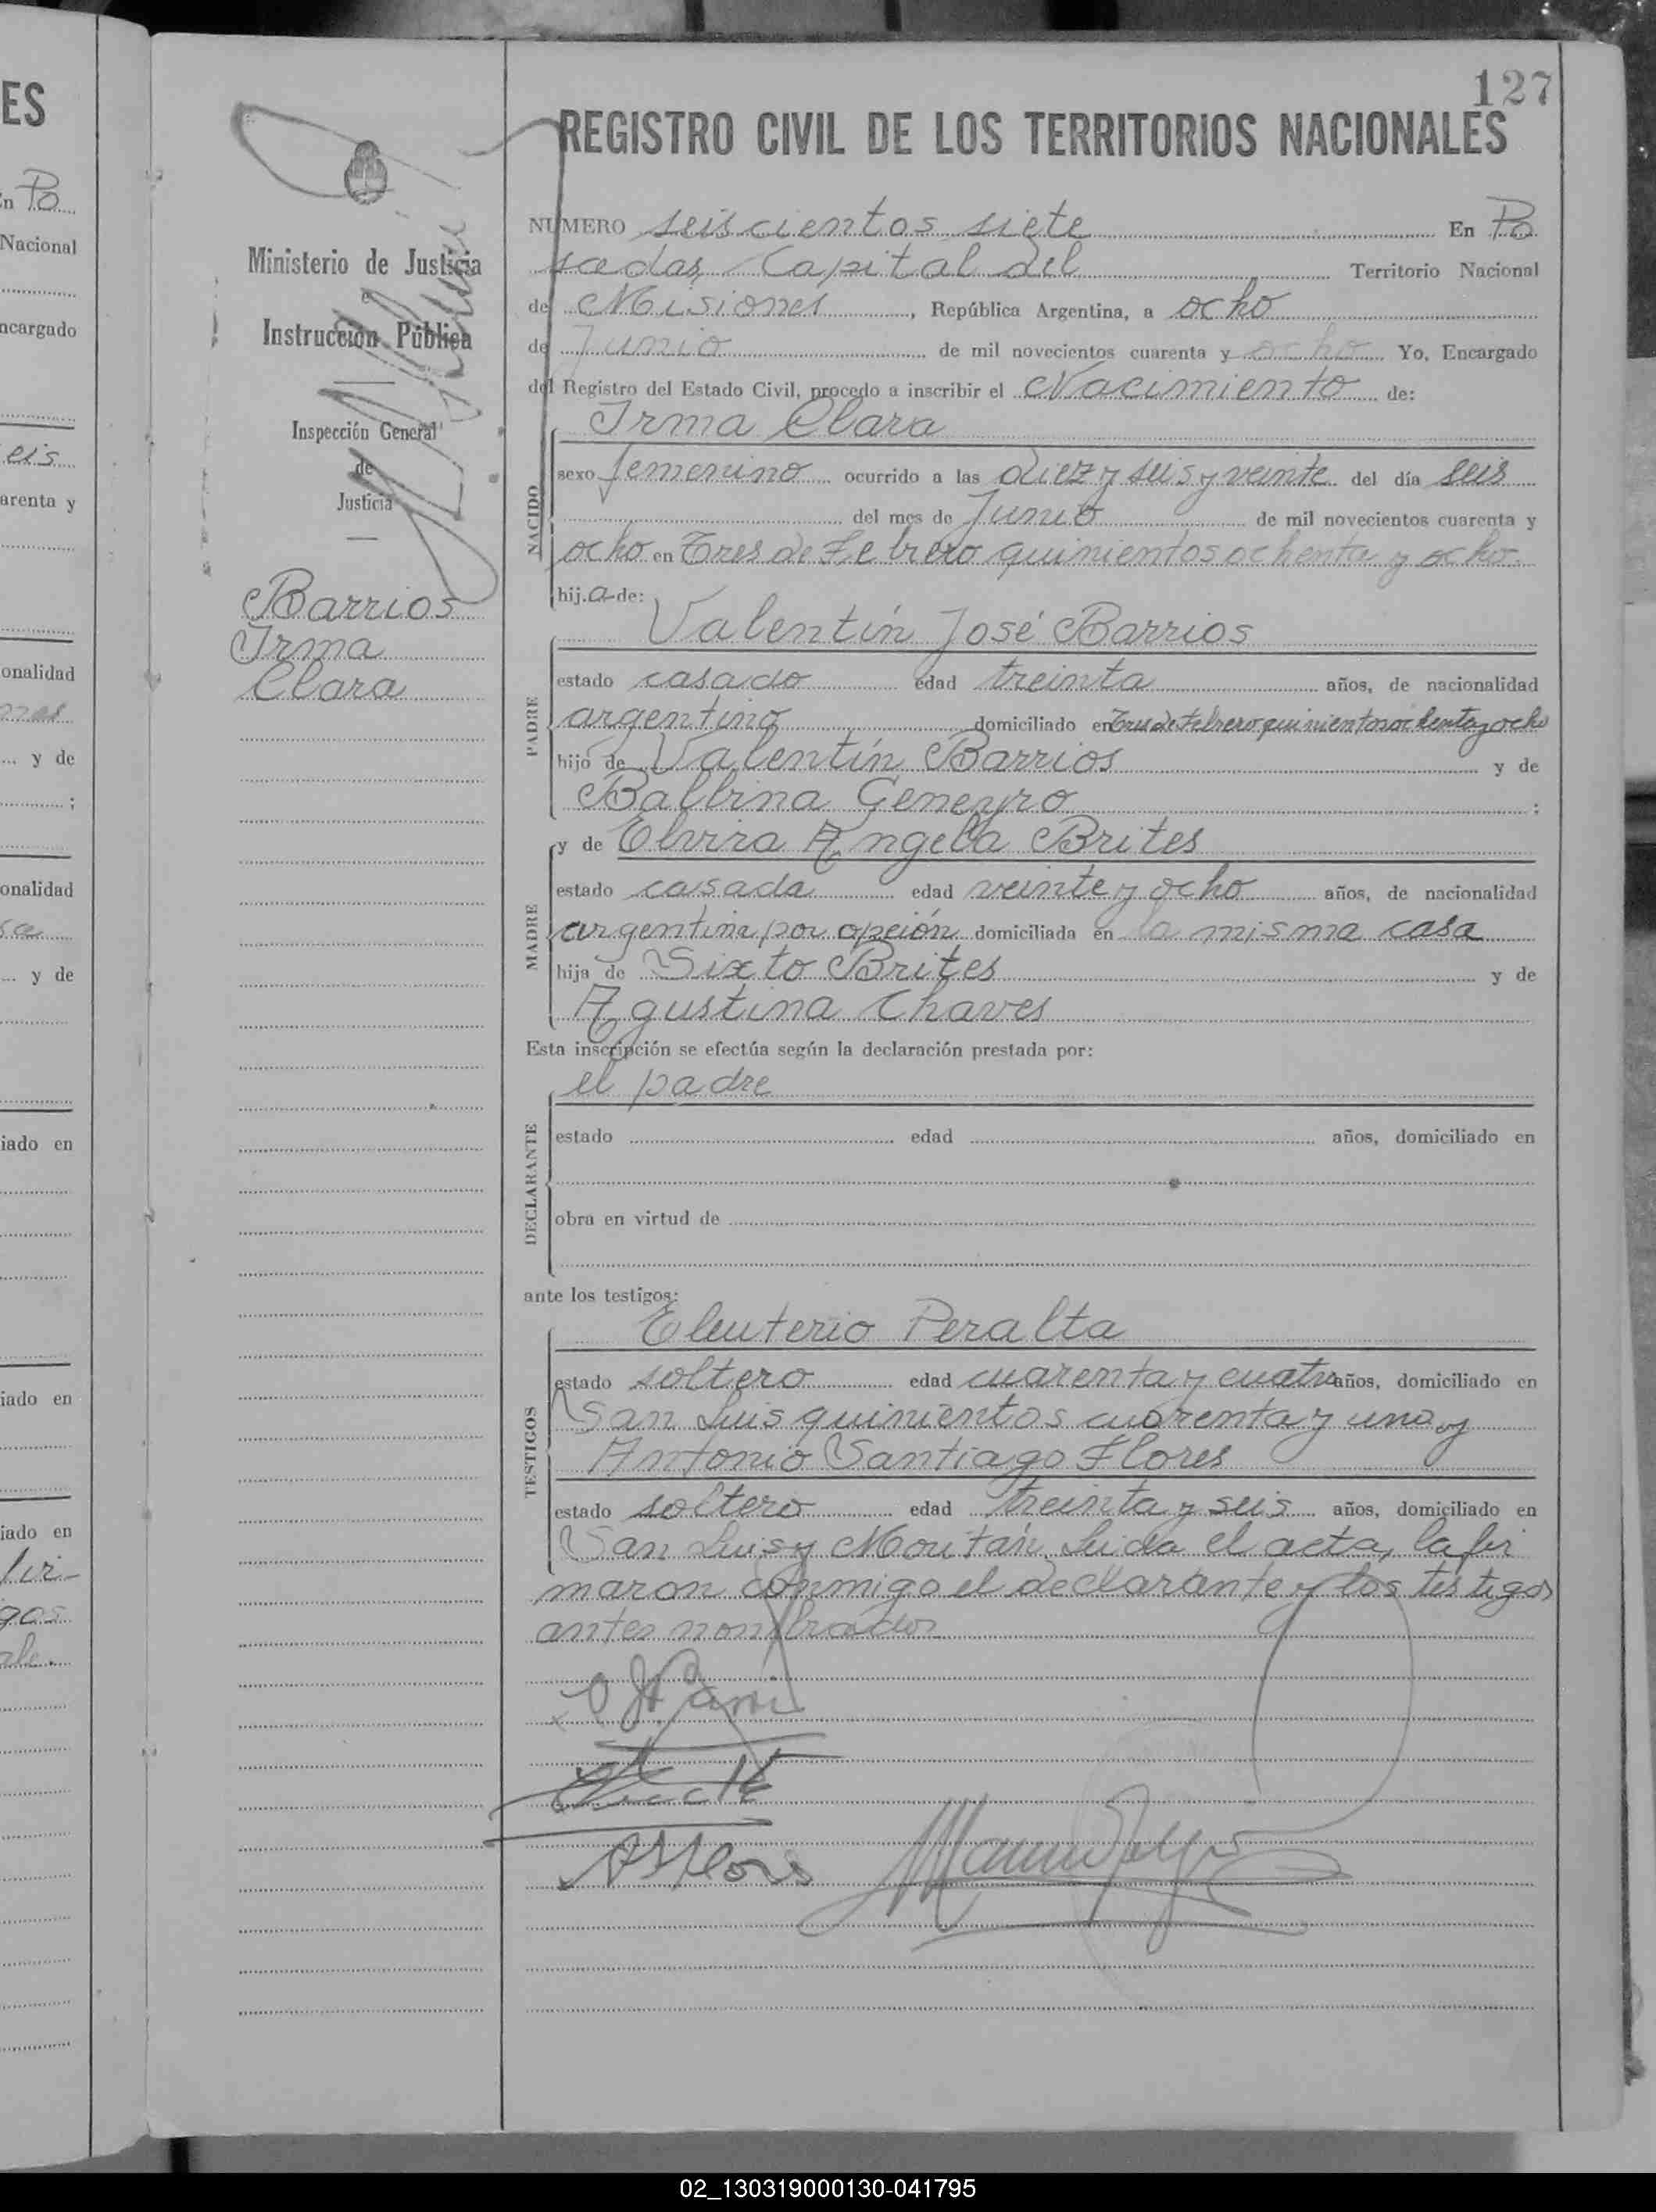 127
REGISTRO CIVIL DE LOS TERRITORIOS NACIONALES
NUMERO seiscientos siete En Po
sadas, Capital del Territorio Nacional
de Misiones, República Argentina, a ocho
de Junio de mil novecientos cuarenta y ocho Yo, Encargado
del Registro del Estado Civil, procedo a inscribir el Nacimiento de:
Irma Clara
NACIDO
sexo femenino ocurrido a las diez y seis y veinte del día seis
del mes de Junio de mil novecientos cuarenta y
ocho en Tres de Febrero quinientos ochenta y ocho.
hija de:
Valentín José Barrios
PADRE
estado casado edad treinta años, de nacionalidad
argentino domiciliado en Tres de Febrero quinientos ochenta y ocho
hijo de Valentín Barrios y de
Balbina Geneyro ;
MADRE
y de Elvira Angela Brites
estado casada edad veinte y ocho años, de nacionalidad
argentina por opción domiciliada en la misma casa
hija de Sixto Brites y de
Agustina Chaves
Esta inscripción se efectúa según la declaración prestada por:
el padre
DECLARANTE
estado edad años, domiciliado en
obra en virtud de
ante los testigos:
Eleuterio Peralta
TESTIGOS
estado soltero edad cuarenta y cuatro años, domiciliado en
San Luis quinientos cuarenta y uno y
Antonio Santiago Flores
estado soltero edad treinta y seis años, domiciliado en
San Luis y Moritán. Leida el acta, la fir
maron conmigo el declarante y los testigos
antes nombrados
ASFlores
Ministerio de Justicia
e
Instrucción Pública
Inspección General
de
Justicia
Barrios
Irma
Clara
ES
En Po
Nacional
ncargado
eis
arenta y
onalidad
y de
;
onalidad
y de
iado en
iado en
iado en
fir-
gos
02_130319000130-041795